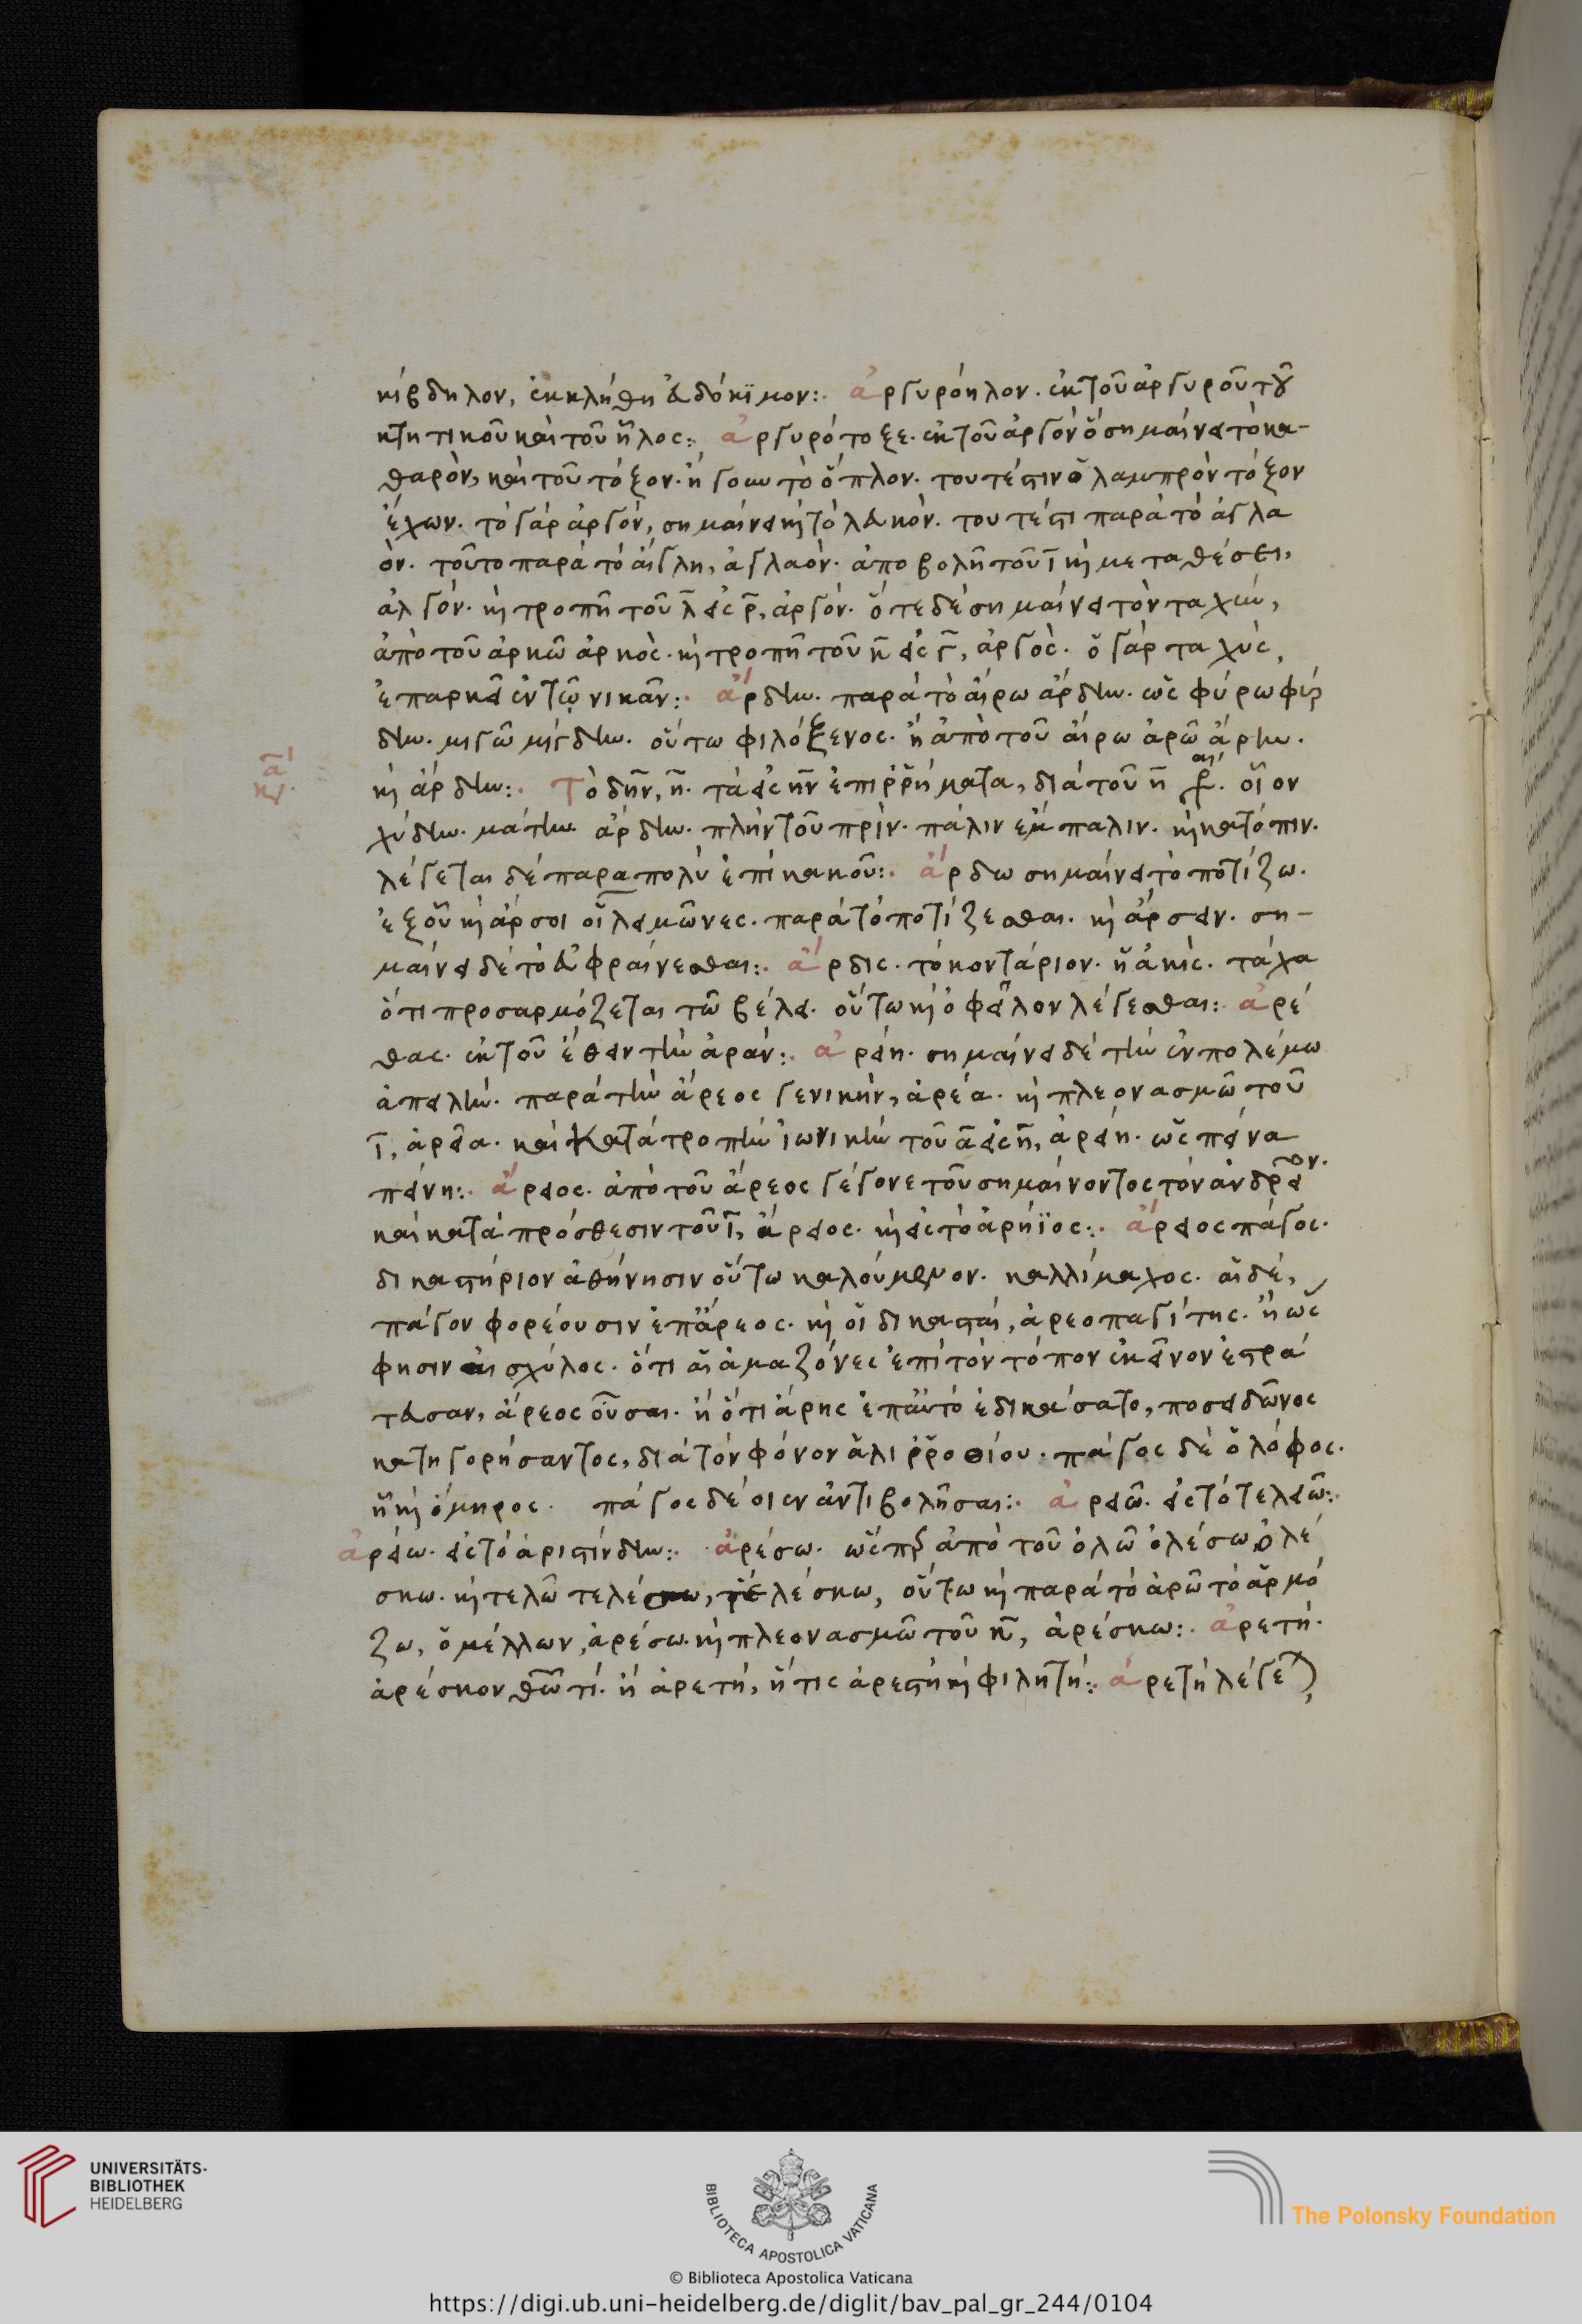 κίβδηλον, ἐκκλήθη ἀδόκϊμον:· ἀργυρόηλον. ἐκ τοῦ ἀργυροῦ τοῦ
κτητικοῦ καὶ τοῦ ἧλος:· ἀργυρότοξε. ἐκ τοῦ ἀργὸν ὃ σημαίνει τὸ κα-
θαρὸν, καὶ τοῦ τόξον. ἤγουν τὸ ὅπλον. τουτέστιν ὁ λαμπρὸν τόξον
ἔχων. τὸ γὰρ ἀργόν, σημαίνει κ(αὶ) τὸ λευκόν. τουτέστι παρὰ τὸ ἀγλα
όν. τοῦτο παρὰ τὸ αἴγλη, ἀγλαόν. ἀποβολῆ τοῦ ῑ κ(αὶ) μεταθέσει,
ἀλγόν. κ(αὶ) τροπῆ τοῦ λ̄ εἰς ρ̄, ἀργόν. ὅτε δὲ σημαίνει τὸν ταχὺν,
ἀπὸ τοῦ ἀρκῶ ἀρκὸς. κ(αὶ) τροπῆ τοῦ κ̄ εἰς γ̄, ἀργὸς. ὁ γὰρ ταχὺς,
ἐπαρκεῖ ἐν τῷ νικᾶν:· ἄρδην. παρὰ τὸ αἴρω ἄρδην. ὡς φύρω φύρ
δην. μιγῶ μίγδην. οὕτω φιλόξενος. ἢ ἀπὸ τοῦ αἴρω ἀρῶ ἄρην.
κ(αὶ) ἄρδην:· Τὸ δῆν, η̄. τὰ εἰς ην ἐπιρρήματα, διὰ τοῦ η̄ γρ. οἷον
χύδην. μάτην. ἄρδην. πλὴν τοῦ πρίν. πάλιν ἔμπαλιν. κ(αὶ) κατόπιν.
λέγεται δὲ παραπολὺ ἐπὶ κακοῦ:· ἄρδω σημαίνει τὸ ποτίζω.
ἐξ οὗ κ(αὶ) ἄρσοι οἱ λειμῶνες. παρὰ τὸ ποτίζεσθαι. κ(αὶ) ἄρσειν. ση-
μαίνει δὲ τὸ εὐφραίνεσθαι:· ἄρδις. τὸ κοντάριον. ἢ ἀκὶς. τάχα
ὅτι προσαρμόζεται τῶ βέλει. οὕτω κ(αὶ) ὀφεῖλον λέγεσθαι:· ἀρέ
θας. ἐκ τοῦ ἔθειν τὴν ἀράν:· ἀρείη. σημαίνει δὲ τὴν ἐν πολέμω
ἀπειλήν. παρὰ τὴν ἄρεος γενικήν, ἀρέα. κ(αὶ) πλεονασμῶ τοῦ
ῑ, ἀρεία. καὶ κατὰ τροπὴν ἰωνικὴν τοῦ ᾱ εἰς η̄, ἀρείη. ὡς πείνα
πείνη:· ἄρειος. ἀπὸ τοῦ ἄρεος γέγονε τοῦ σημαίνοντος τὸν ἀνδρεῖον.
καὶ κατὰ πρόσθεσιν τοῦ ῑ, ἄρειος. κ(αὶ) εἰς τὸ ἀρήϊος:· ἄρειος πάγος.
δικαστήριον ἀθήνησιν οὕτω καλούμενον. καλλίμαχος. αἱ δέ,
πάγον φορέουσιν ἐπ' ἄρεος. κ(αὶ) οἱ δικασταὶ, ἀρεοπαγίτης. ἢ ὡς
φησιν αἰσχύλος. ὅτι αἱ ἀμαζόνες ἐπὶ τὸν τόπον ἐκεῖνον ἐστρά
τευσαν, ἄρεος οὖσαι. ἢ ὅτι ἄρης ἐπ' αὐτὸ ἐδικάσατο, ποσειδῶνος
κατηγορήσαντος, διὰ τὸν φόνον ἁλιρροθίου. πάγος δὲ ὁ λόφος.
ἢ κ(αὶ) ὅμηρος. πάγος δέ οἱ ἐν ἀντιβολῆσαι:· ἀρειῶ. εἰς τὸ τελειῶ:·
ἀρείω. εἰς τὸ ἀριστίνδην:· ἀρέσω. ὥσπερ ἀπὸ τοῦ ὀλῶ ὀλέσω ὀλέ
σκω. κ(αὶ) τελῶ τελέσω, τελέσκω, οὕτω κ(αὶ) παρὰ τὸ ἀρῶ τὸ ἁρμό
ζω, ὁ μέλλων, ἀρέσω. κ(αὶ) πλεονασμῶ τοῦ κ̄, ἀρέσκω:· ἀρετή.
ἀρέσκον θεῶ τί. ἢ ἀρετή, ἥτις ἀρεστὴ κ(αὶ) φιλητή:· ἀρετὴ λέγε(ται)
UNIVERSITÄTS-
BIBLIOTHEK
HEIDELBERG
BIBLIOTECA APOSTOLICA VATICANA
The Polonsky Foundation
© Biblioteca Apostolica Vaticana
https://digi.ub.uni-heidelberg.de/diglit/bav_pal_gr_244/0104